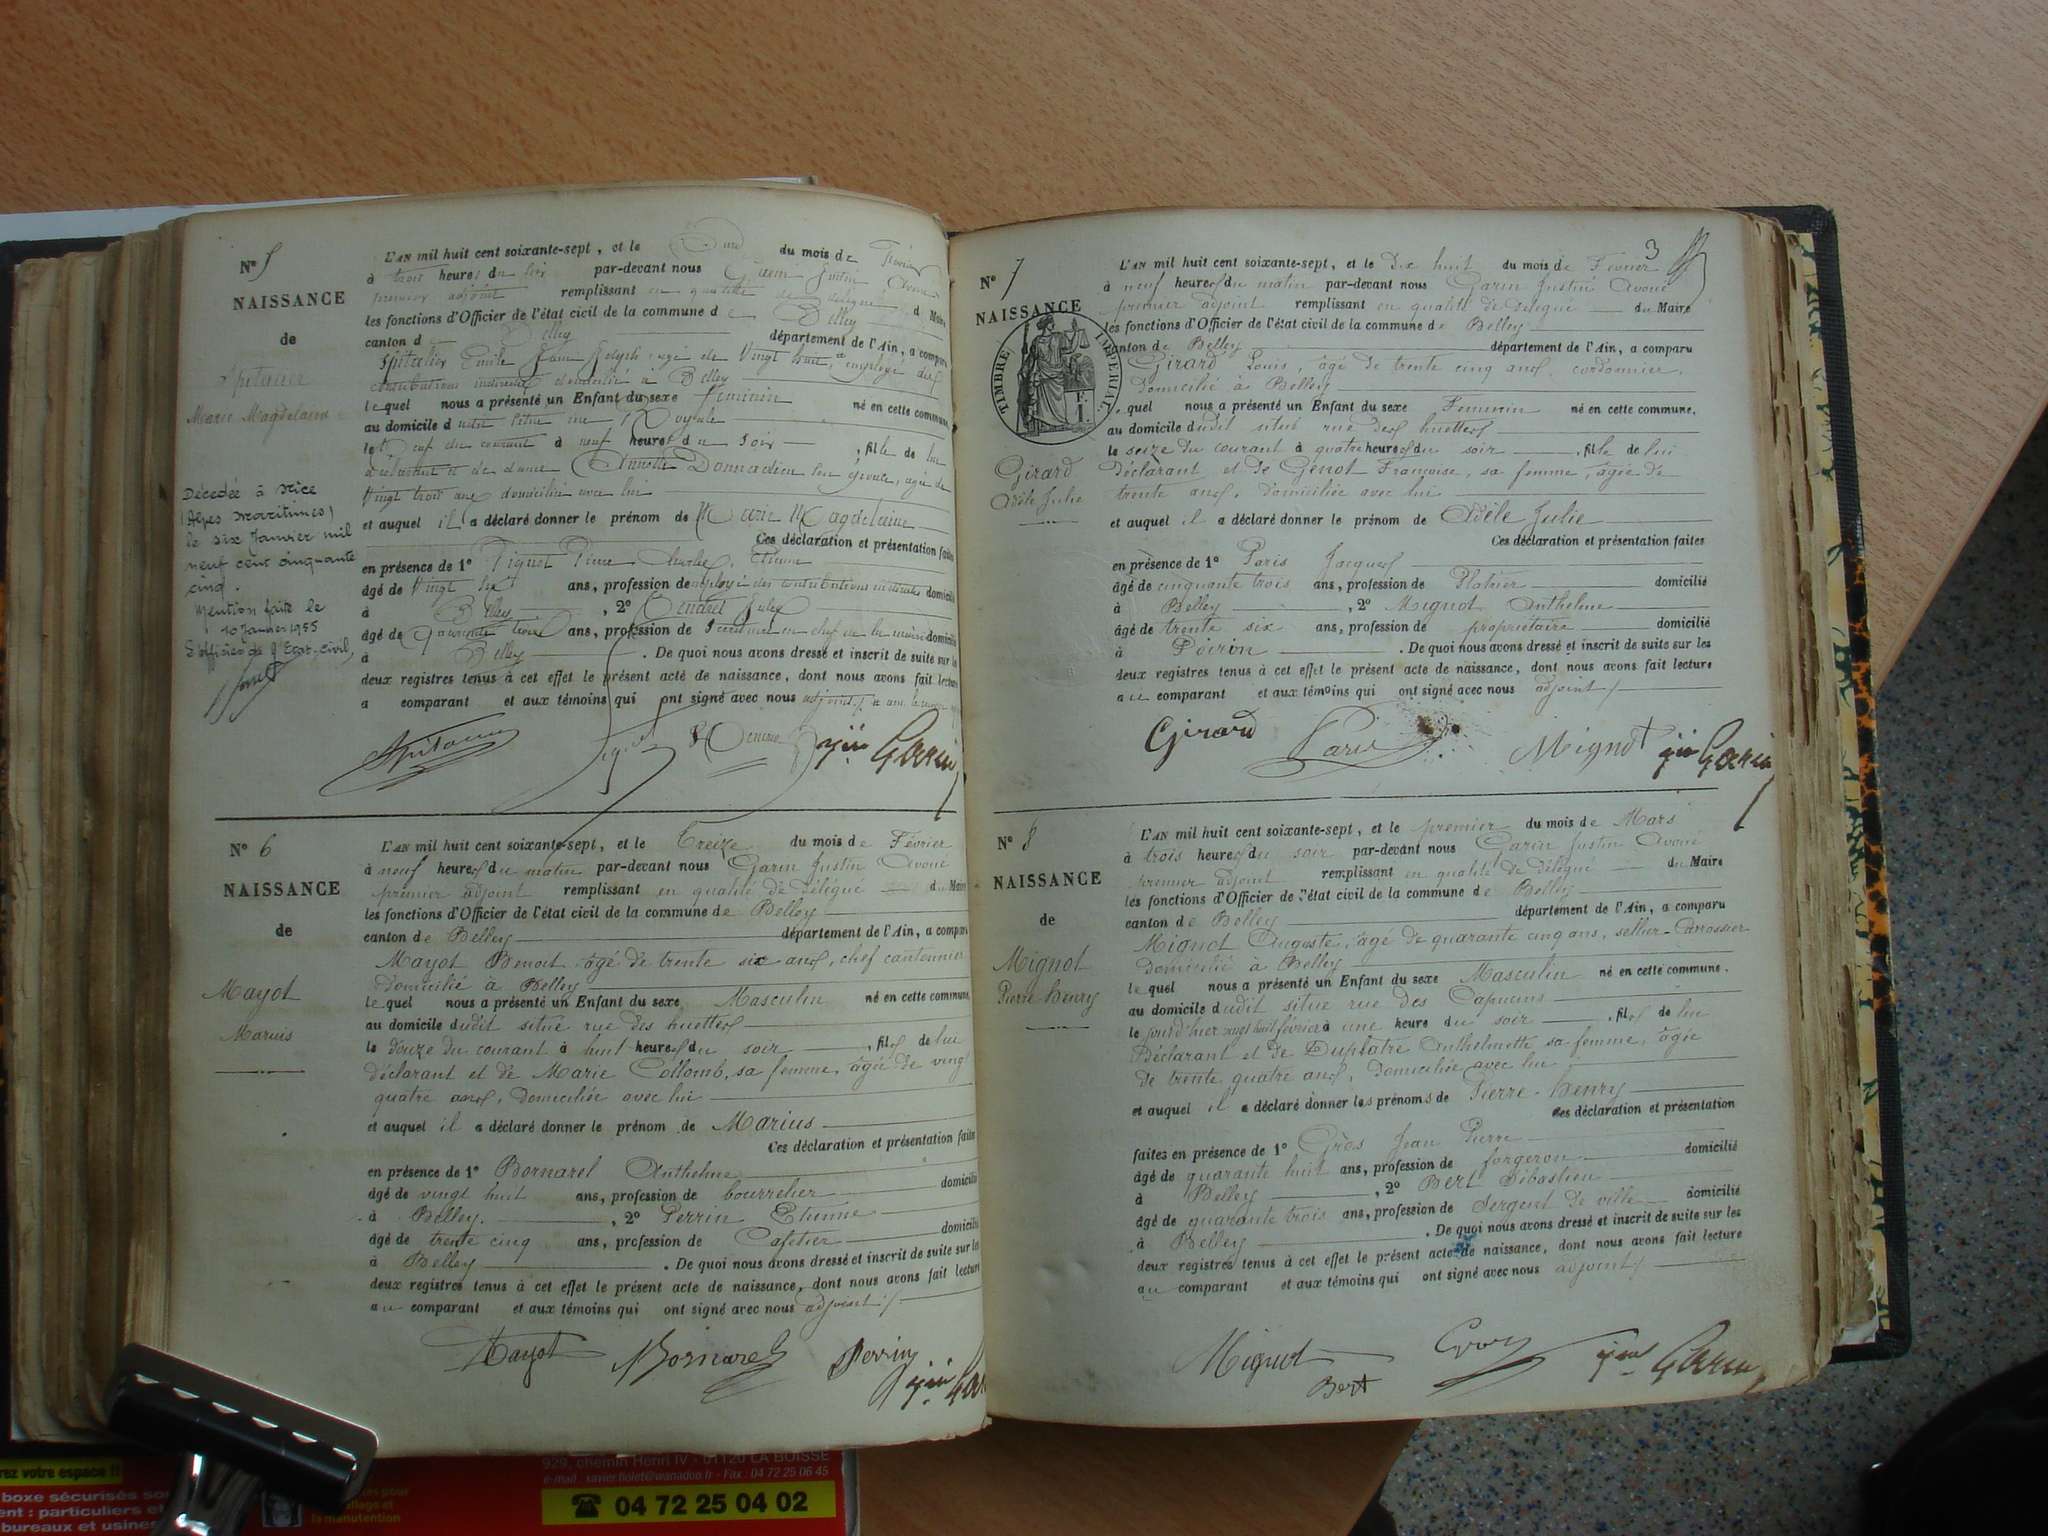 N° 5
NAISSANCE
de
Spitalier
Marie Magdelaine
Décédée à Nice
(Alpes Maritimes)
le six Janvier mil
neuf cent cinquante
cinq.
Mention faite le
10 Janvier 1955
L'officier de l'Etat-civil,
L'AN mil huit cent soixante-sept, et le onze du mois de Février
à trois heures du soir par-devant nous Garin Justin avoué
premier adjoint remplissant en qualité de délégué du Maire
les fonctions d'Officier de l'état civil de la commune de Belley
canton de Belley département de l'Ain, a comparu
Spitalier Emile Jean Joseph âgé de Vingt huit, employé des
contributions indirectes domicilié à Belley
lequel nous a présenté un Enfant du sexe Féminin né en cette commune,
au domicile dudit situé rue Royale
le neuf du courant à neuf heures du soir, fille de lui
déclarant et de dame Donnadieu son épouse, agée de
Vingt trois ans domiciliée avec lui
et auquel il a déclaré donner le prénom de Marie Magdelaine
Ces déclaration et présentation faites
en présence de 1° Pignot Pierre Charles Etienne
âgé de Vingt six ans, profession de employé des contributions indirectes domicilié
à Belley, 2° Jules
âgé de quarante trois ans, profession de Secrétaire en chef de la mairie domicilié
à Belley. De quoi nous avons dressé et inscrit de suite sur les
deux registres tenus à cet effet le présent acte de naissance, dont nous avons fait lecture
a comparant et aux témoins qui ont signé avec nous adjoint
Spitalier Garin
N° 6
NAISSANCE
de
Mayot
Marius
L'AN mil huit cent soixante-sept, et le Treize du mois de Février
à neuf heures du matin par-devant nous Garin Justin Avoué
premier adjoint remplissant en qualité de délégué du Maire
les fonctions d'Officier de l'état civil de la commune de Belley
canton de Belley département de l'Ain, a comparu
Mayot Benoit âgé de trente six ans, chef cantonnier
domicilié à Belley
lequel nous a présenté un Enfant du sexe Masculin né en cette commune,
au domicile dudit situé rue des huettes
le douze du courant à huit heures du soir, fils de lui
déclarant et de Marie Collomb, sa femme, âgée de vingt
quatre ans, domiciliée avec lui
et auquel il a déclaré donner le prénom de Marius
Ces déclaration et présentation faites
en présence de 1° Bornarel Anthelme
âgé de vingt huit ans, profession de bourrelier domicilié
à Belley. , 2° Perrin Etienne
âgé de trente cinq ans, profession de Cafetier domicilié
à Belley. De quoi nous avons dressé et inscrit de suite sur les
deux registres tenus à cet effet le présent acte de naissance, dont nous avons fait lecture
au comparant et aux témoins qui ont signé avec nous adjoint
Mayot Bornarel Perrin
3
N° 7
NAISSANCE
TIMBRE IMPERIAL
Girard
Adèle Julie
L'AN mil huit cent soixante-sept, et le dix huit du mois de Février
à neuf heures du matin par-devant nous Garin Justin Avoué
premier adjoint remplissant en qualité de délégué du Maire
les fonctions d'Officier de l'état civil de la commune de Belley
canton de Belley département de l'Ain, a comparu
Girard Louis, âgé de trente cinq ans, cordonnier,
domicilié à Belley
lequel nous a présenté un Enfant du sexe Féminin né en cette commune,
au domicile dudit situé rue des huettes
le seize du courant à quatre heures du soir, fille de lui
déclarant et de Genot Françoise, sa femme, âgée de
trente ans, domiciliée avec lui
et auquel il a déclaré donner le prénom de Adèle Julie
Ces déclaration et présentation faites
en présence de 1° Paris Jacques
âgé de cinquante trois ans, profession de Platrier domicilié
à Belley, 2° Mignot Anthelme
âgé de trente six ans, profession de propriétaire domicilié
à Poiron. De quoi nous avons dressé et inscrit de suite sur les
deux registres tenus à cet effet le présent acte de naissance, dont nous avons fait lecture
au comparant et aux témoins qui ont signé avec nous adjoint
Girard Paris Mignot Garin
N° 8
NAISSANCE
de
Mignot
Pierre Henry
L'AN mil huit cent soixante-sept, et le premier du mois de Mars
à trois heures du soir par-devant nous Garin Justin Avoué
premier adjoint remplissant en qualité de délégué du Maire
les fonctions d'Officier de l'état civil de la commune de Belley
canton de Belley département de l'Ain, a comparu
Mignot Auguste, âgé de quarante cinq ans, sellier-carrossier
domicilié à Belley
lequel nous a présenté un Enfant du sexe Masculin né en cette commune.
au domicile dudit situé rue des Capucins
le jourd'hier vingt huit février à une heure du soir, fils de lui
déclarant et de Duplatre Anthelmette sa femme, âgée
de trente quatre ans, domiciliée avec lui
et auquel il a déclaré donner les prénoms de Pierre-Henry
Ces déclaration et présentation
faites en présence de 1° Jean Pierre
âgé de quarante huit ans, profession de forgeron domicilié
à Belley, 2° Bert Sébastien
âgé de quarante trois ans, profession de Sergent de ville domicilié
à Belley. De quoi nous avons dressé et inscrit de suite sur les
deux registres tenus à cet effet le présent acte de naissance, dont nous avons fait lecture
au comparant et aux témoins qui ont signé avec nous adjoint
Mignot Garin
Bert
rez votre espace !!
boxe sécurisés
ent : particuliers et
bureaux et usines
la manutention
929, chemin Henri IV - 01120 LA BOISSE
e-mail : xavier.fiolet@wanadoo.fr - Fax : 04 72 25 06 45
☎ 04 72 25 04 02